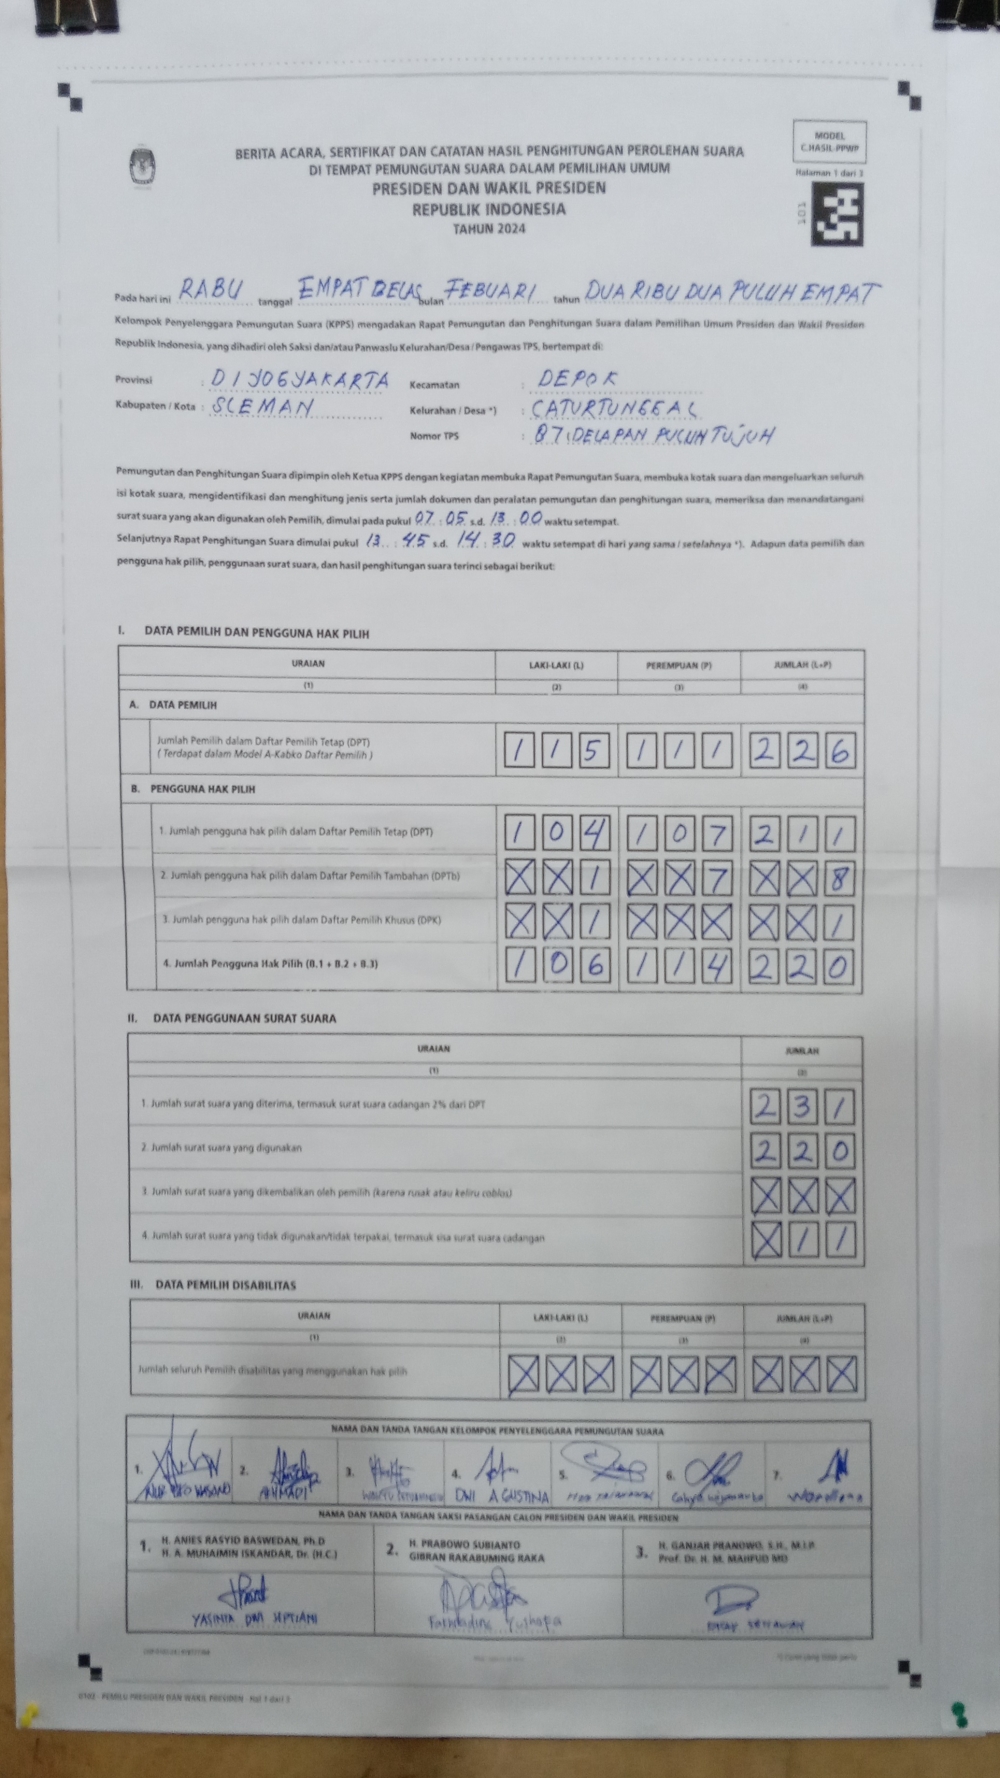 MODEL
C.HASIL-PPWP
Halaman 1 dari 3
101
BERITA ACARA, SERTIFIKAT DAN CATATAN HASIL PENGHITUNGAN PEROLEHAN SUARA
DI TEMPAT PEMUNGUTAN SUARA DALAM PEMILIHAN UMUM
PRESIDEN DAN WAKIL PRESIDEN
REPUBLIK INDONESIA
TAHUN 2024
Pada hari ini RABU tanggal EMPAT BELAS bulan FEBUARI tahun DUA RIBU DUA PULUH EMPAT
Kelompok Penyelenggara Pemungutan Suara (KPPS) mengadakan Rapat Pemungutan dan Penghitungan Suara dalam Pemilihan Umum Presiden dan Wakil Presiden
Republik Indonesia, yang dihadiri oleh Saksi dan/atau Panwaslu Kelurahan/Desa / Pengawas TPS, bertempat di:
Provinsi : D I YOGYAKARTA Kecamatan : DEPOK
Kabupaten / Kota : SLEMAN Kelurahan / Desa *) : CATURTUNGGAL
Nomor TPS : 87 (DELAPAN PULUH TUJUH
Pemungutan dan Penghitungan Suara dipimpin oleh Ketua KPPS dengan kegiatan membuka Rapat Pemungutan Suara, membuka kotak suara dan mengeluarkan seluruh
isi kotak suara, mengidentifikasi dan menghitung jenis serta jumlah dokumen dan peralatan pemungutan dan penghitungan suara, memeriksa dan menandatangani
surat suara yang akan digunakan oleh Pemilih, dimulai pada pukul 07 : 05 s.d. 13 : 00 waktu setempat.
Selanjutnya Rapat Penghitungan Suara dimulai pukul 13 : 45 s.d. 14 : 30 waktu setempat di hari yang sama / setelahnya *). Adapun data pemilih dan
pengguna hak pilih, penggunaan surat suara, dan hasil penghitungan suara terinci sebagai berikut:
I. DATA PEMILIH DAN PENGGUNA HAK PILIH
URAIAN LAKI-LAKI (L) PEREMPUAN (P) JUMLAH (L+P)
(1) (2) (3) (4)
A. DATA PEMILIH
Jumlah Pemilih dalam Daftar Pemilih Tetap (DPT)
( Terdapat dalam Model A-Kabko Daftar Pemilih ) 1 1 5 1 1 1 2 2 6
B. PENGGUNA HAK PILIH
1. Jumlah pengguna hak pilih dalam Daftar Pemilih Tetap (DPT) 1 0 4 1 0 7 2 1 1
2. Jumlah pengguna hak pilih dalam Daftar Pemilih Tambahan (DPTb) X X 1 X X 7 X X 8
3. Jumlah pengguna hak pilih dalam Daftar Pemilih Khusus (DPK) X X 1 X X X X X 1
4. Jumlah Pengguna Hak Pilih (B.1 + B.2 + B.3) 1 0 6 1 1 4 2 2 0
II. DATA PENGGUNAAN SURAT SUARA
URAIAN JUMLAH
(1) (2)
1. Jumlah surat suara yang diterima, termasuk surat suara cadangan 2% dari DPT 2 3 1
2. Jumlah surat suara yang digunakan 2 2 0
3. Jumlah surat suara yang dikembalikan oleh pemilih (karena rusak atau keliru coblos) X X X
4. Jumlah surat suara yang tidak digunakan/tidak terpakai, termasuk sisa surat suara cadangan X 1 1
III. DATA PEMILIH DISABILITAS
URAIAN LAKI-LAKI (L) PEREMPUAN (P) JUMLAH (L+P)
(1) (2) (3) (4)
Jumlah seluruh Pemilih disabilitas yang menggunakan hak pilih X X X X X X X X X
NAMA DAN TANDA TANGAN KELOMPOK PENYELENGGARA PEMUNGUTAN SUARA
1. 2. 3. 4. 5. 6. 7.
AHMADI DWI AGUSTINA
NAMA DAN TANDA TANGAN SAKSI PASANGAN CALON PRESIDEN DAN WAKIL PRESIDEN
1. H. ANIES RASYID BASWEDAN, Ph.D
H. A. MUHAIMIN ISKANDAR, Dr. (H.C.)
2. H. PRABOWO SUBIANTO
GIBRAN RAKABUMING RAKA
3. H. GANJAR PRANOWO, S.H., M.I.P.
Prof. Dr. H. M. MAHFUD MD
YASINTA DWI SEPTIANI
*) Coret yang tidak perlu
PEMILU PRESIDEN DAN WAKIL PRESIDEN - Hal 1 dari 3